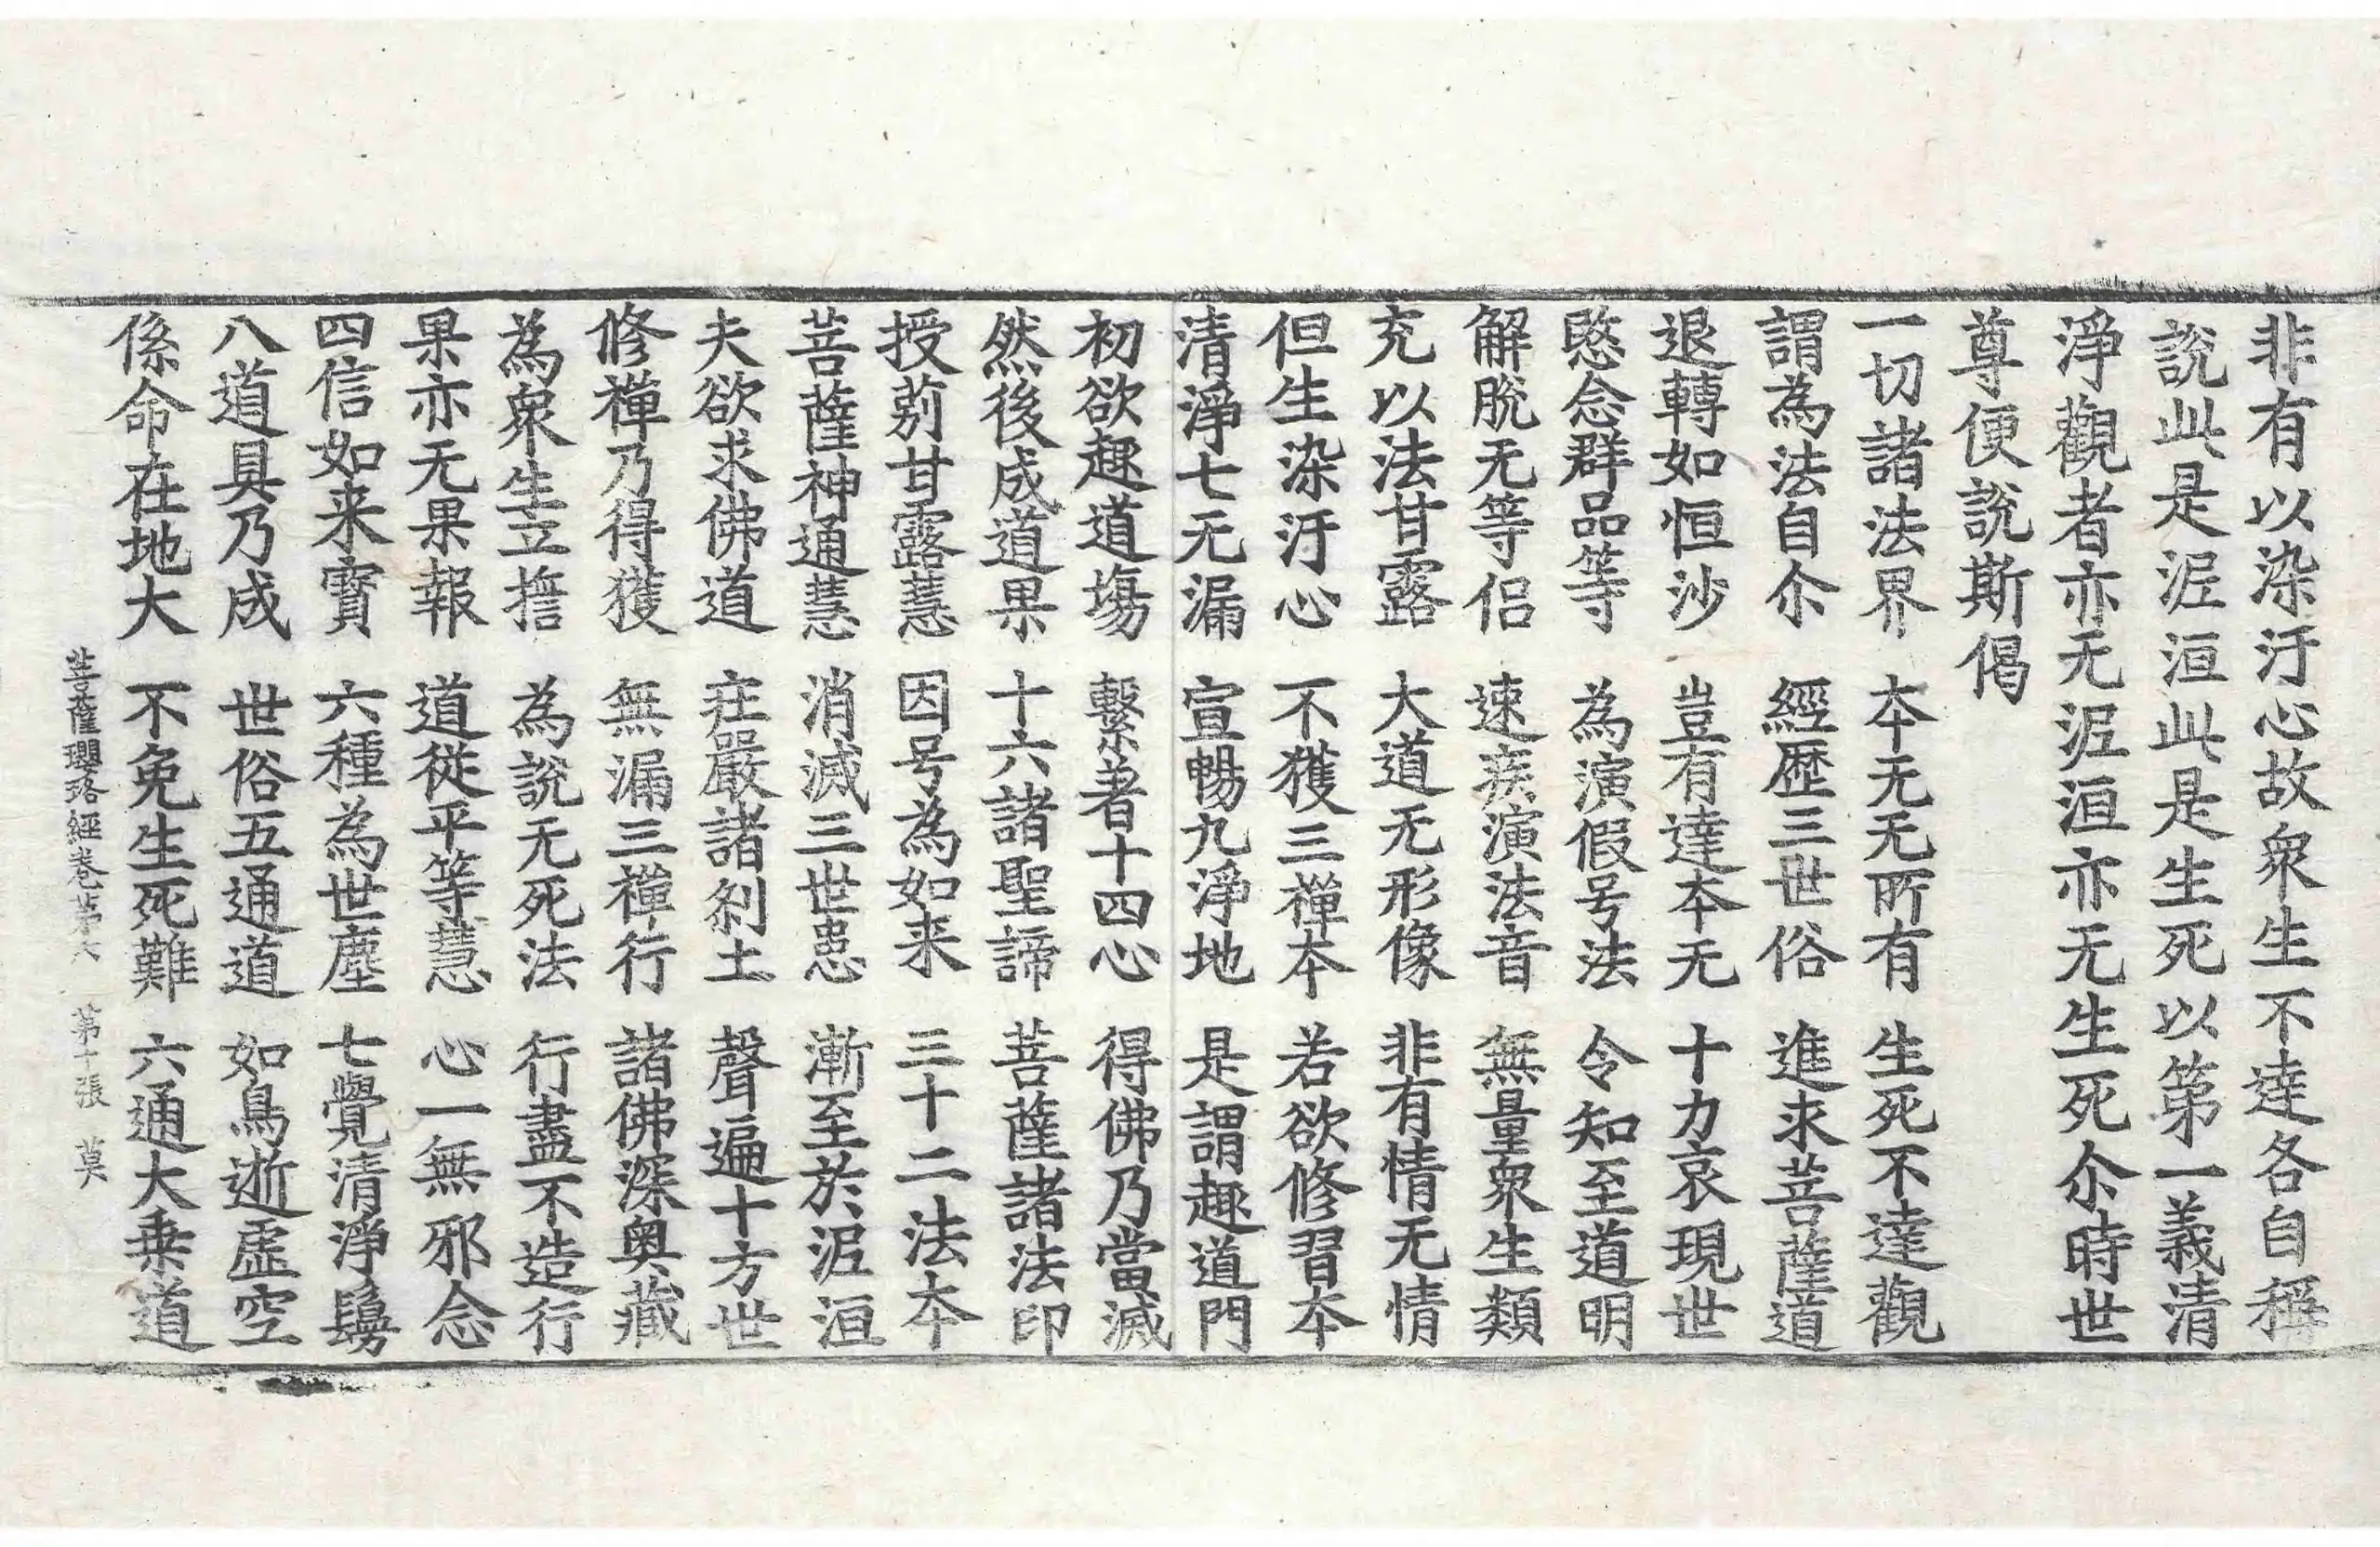 非有以染汙心故衆生不達各自稱
說此是泥洹此是生死以第一義清
淨觀者亦无泥洹亦无生死尒時世
尊便說斯偈
一切諸法界 本无无所有 生死不達觀
謂為法自尒 經歷三世俗 進求菩薩道
退轉如恒沙 豈有達本无 十力哀現世
愍念群品等 為演假号法 令知至道明
解脫无等侶 速疾演法音 無量衆生類
充以法甘露 大道无形像 非有情无情
但生染汙心 不獲三禪本 若欲修習本
清淨七无漏 宣暢九淨地 是謂趣道門
初欲趣道場 繫著十四心 得佛乃當滅
然後成道果 十六諸聖諦 菩薩諸法印
授莂甘露慧 因号為如来 三十二法本
菩薩神通慧 消滅三世患 漸至於泥洹
夫欲求佛道 莊嚴諸剎土 聲遍十方世
修禪乃得獲 無漏三禪行 諸佛深奧藏
為衆生立擔 為說无死法 行盡不造行
果亦无果報 道從平等慧 心一無邪念
四信如来寶 六種為世塵 七覺清淨鬘
八道具乃成 世俗五通道 如鳥逝虛空
係命在地大 不免生死難 六通大乗道
菩薩瓔珞經卷第六 第十張 莫